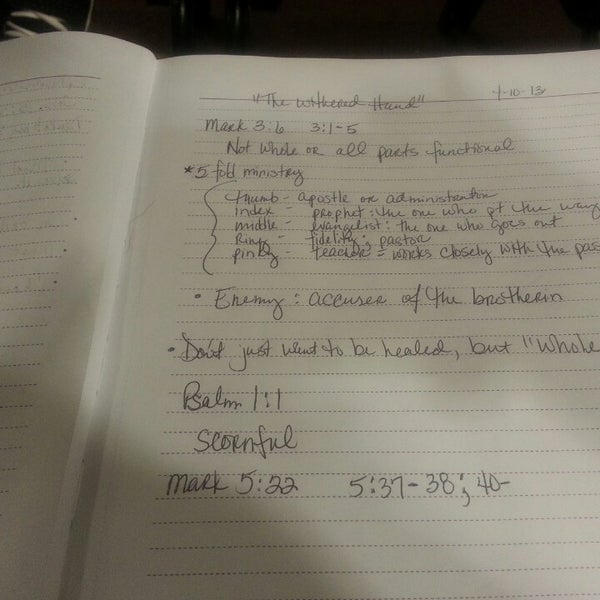 "The withered Hand" 4-10-13
Mark 3:6 3:1-5
Not whole or all parts functional
*5 fold ministry
thumb - apostle or administration
index - prophet: the one who pt the way
middle - evangelist: the one who goes out
Ring - fidelity; pastor
pinky - teacher = works closely with the pas
• Enemy: accuser of the brotherin
• Don't just want to be healed, but "whole
Psalm 1:1
scornful
Mark 5:22 5:37-38; 40-